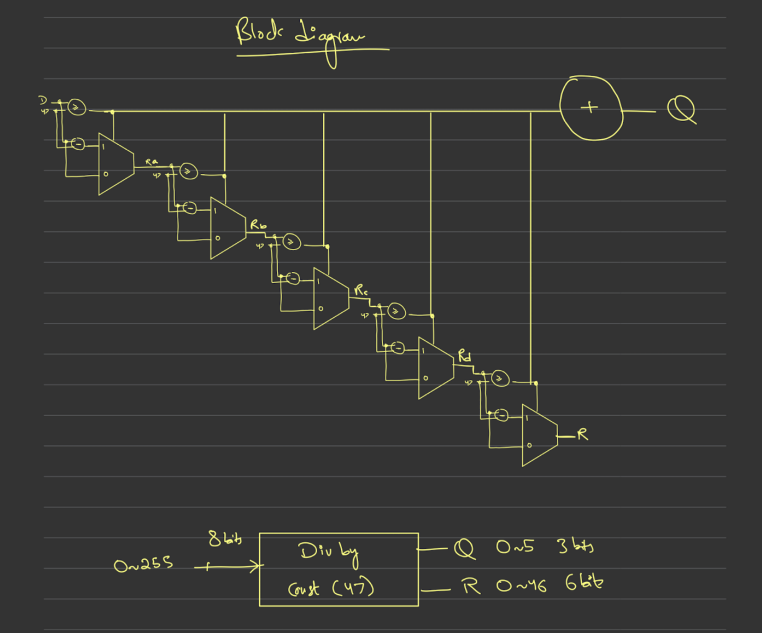 Block diagram
D ≥ + Q
47
- 1
0
Ra ≥
47
- 1
0
Rb ≥
47
- 1
0
Rc ≥
47
- 1
0
Rd ≥
47
- 1
R
0
8bits
0~255
Div by
Const (47)
Q 0~5 3bits
R 0~46 6bits